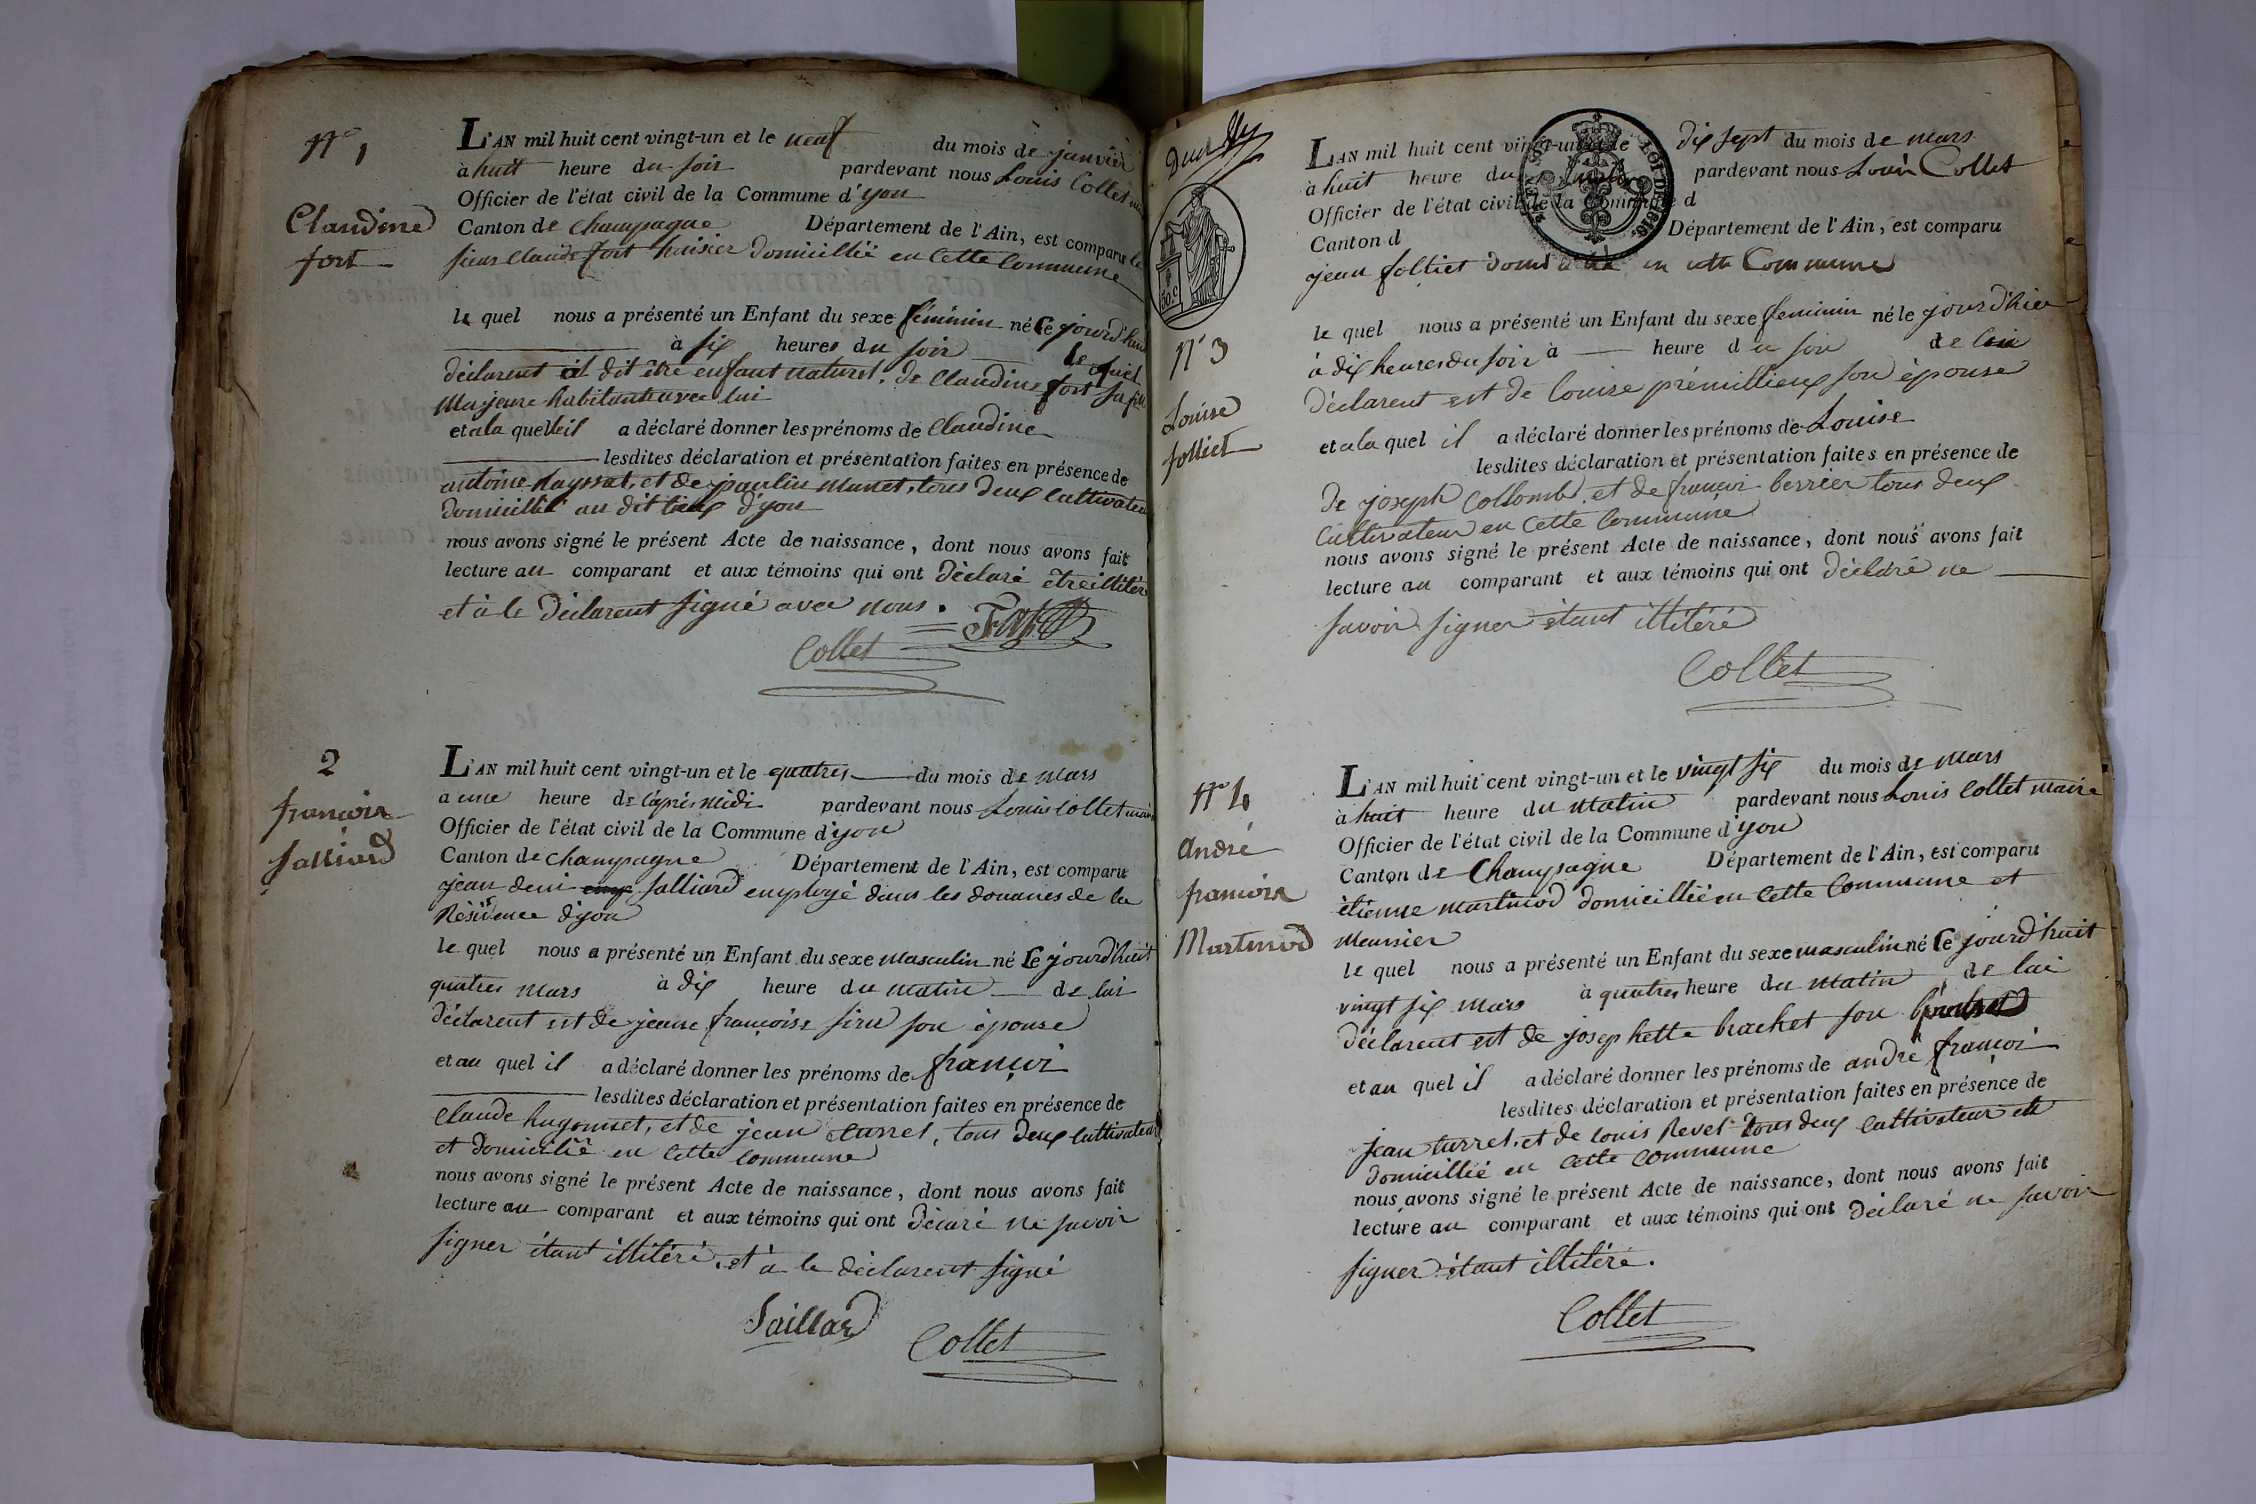 N° 1
Claudine
fort
L'AN mil huit cent vingt-un et le neuf du mois de janvier
à huit heure du soir pardevant nous Louis Collet
Officier de l'état civil de la Commune d'yon
Canton de Champagne Département de l'Ain, est comparu le
sieur Claude fort huisier domicillié en cette Commune
le quel nous a présenté un Enfant du sexe féminin né Ce jourd'hui
à six heures du soir le quel
déclarent il dit être enfant naturel, de Claudine fort sa
Majeure habitante avec lui
et a la quelle il a déclaré donner les prénoms de Claudine
lesdites déclaration et présentation faites en présence de
antoine et de paulin tous deux Cultivateu
domicillié au dit lieux d'yon
nous avons signé le présent Acte de naissance, dont nous avons fait
lecture au comparant et aux témoins qui ont déclaré être illitéré
et à le déclarent signé avec nous.
Fort
Collet
2
françois
Salliard
L'AN mil huit cent vingt-un et le quatres du mois de Mars
a une heure de l'après midi pardevant nous Louis Collet mair
Officier de l'état civil de la Commune d'yon
Canton de Champagne Département de l'Ain, est comparu
jean deni Salliard employé dans les douanes de la
Résidence d'yon
le quel nous a présenté un Enfant du sexe masculin né Ce jourd'huit
quatres mars à dix heure du matin de lui
déclarent est de jeane françoise son épouse
et au quel il a déclaré donner les prénoms de françoi
lesdites déclaration et présentation faites en présence de
Claude hugonnet, et de jean turrel, tous deux Cultivateur
et domicilié en Cette Commune
nous avons signé le présent Acte de naissance, dont nous avons fait
lecture au comparant et aux témoins qui ont déclaré ne savoir
signer étant illitéré, et à le déclarent signé
Saillard
Collet
N° 3
Louise
folliet
50 c
LOI DE 1816
L'AN mil huit cent vingt-un et le dix sept du mois de mars
à huit heure du pardevant nous Louis Collet
Officier de l'état civil de la Commune d
Canton d Département de l'Ain, est comparu
jean folliet domicilié en cette Commune
le quel nous a présenté un Enfant du sexe feminin né le jours d'hier
à dix heures du soir à heure du soir de lui
déclarent est de louise prémillieux son épouse
et a la quel il a déclaré donner les prénoms de Louise
lesdites déclaration et présentation faites en présence de
de joseph Collomb et de françoi berrier tous deux
Cultivateur en Cette Commune
nous avons signé le présent Acte de naissance, dont nous avons fait
lecture au comparant et aux témoins qui ont déclaré ne
savoir signer étant illitéré
Collet
N° 4
André
françois
Martinod
L'AN mil huit cent vingt-un et le vingt six du mois de Mars
à huit heure du Matin pardevant nous Louis Collet maire
Officier de l'état civil de la Commune d'yon
Canton de Champagne Département de l'Ain, est comparu
étienne martinod domicillié en Cette Commune et
Meunier
le quel nous a présenté un Enfant du sexe masculin né Ce jourd'huit
vingt six mars à quatres heure du Matin de lui
déclarent est de josephette brachet son
et au quel il a déclaré donner les prénoms de andré françoi
lesdites déclaration et présentation faites en présence de
jean turrel, et de louis Revet tous deux Cultivateur et
domicillié en Cette Commune
nous avons signé le présent Acte de naissance, dont nous avons fait
lecture au comparant et aux témoins qui ont déclaré ne savoir
signer étant illitéré.
Collet